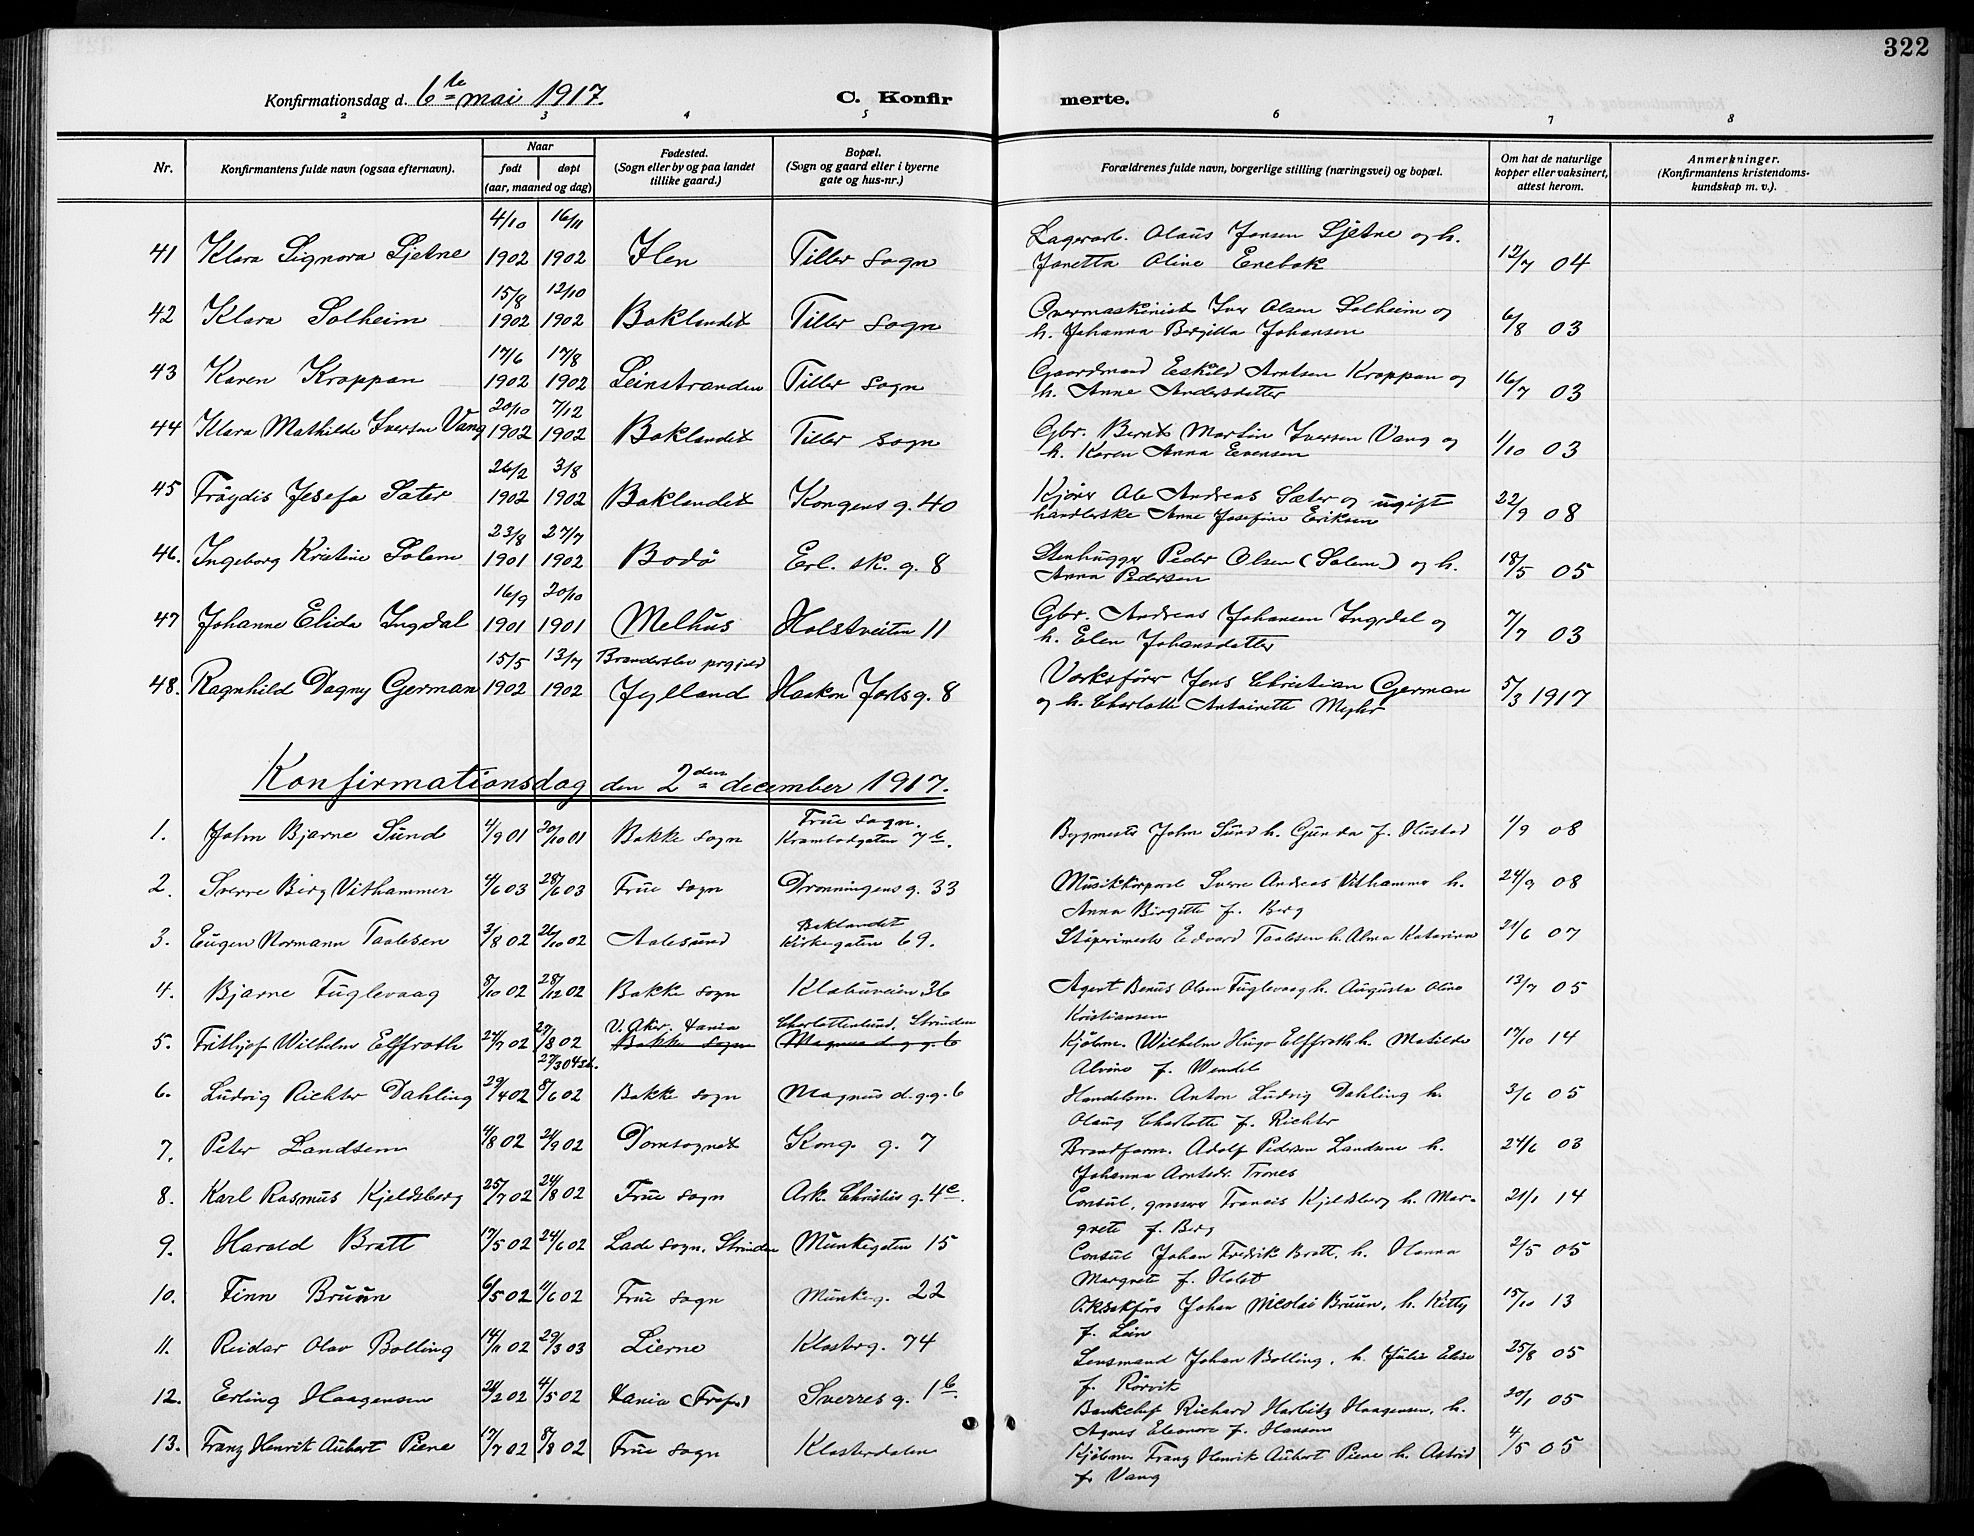 322
Konfirmationsdag d. 6te mai 1917.
C. Konfir
merte.
2 3 4 5 6 7 8
Nr.
Konfirmantens fulde navn (ogsaa efternavn).
Naar
født
døpt
(aar, maaned og dag)
Fødested.
(Sogn eller by og paa landet
tillike gaard.)
Bopæl.
(Sogn og gaard eller i byerne
gate og hus-nr.)
Forældrenes fulde navn, borgerlige stilling (næringsvei) og bopæl.
Om hat de naturlige
kopper eller vaksinert,
attest herom.
Anmerkninger.
(Konfirmantens kristendoms-
kundskap m. v.).
4/10 16/11
41 Klara Signora Sjetne 1902 1902 Ilen Tiller sogn Lagerarb. Olaus Jonsen Sjetne og h.
Janetta Oline Enebak 12/7 04
15/8 12/10
42 Klara Solheim 1902 1902 Baklandet Tiller sogn Overmaskinist Iver Olsen Solheim og
h. Johanna Bergitta Johansen 6/8 03
17/6 17/8
43 Karen Kroppan 1902 1902 Leinstranden Tiller sogn Gaardmand Eskild Arntsen Kroppan og
h. Anne Andersdatter 16/7 03
20/10 7/12
44 Klara Mathilde Iversen Vang 1902 1902 Baklandet Tiller sogn Gbr. Bernt Martin Iversen Vang og
h. Karen Anna Evensen 1/10 03
26/2 3/8
45 Frøydis Jesefa Sæter 1902 1902 Baklandet Kongens g. 40 Kjører Ole Andreas Sæter og ugift
handlerske Anne Josefine Eriksen 22/9 08
23/8 27/7
46. Ingeborg Kristine Solem 1901 1902 Bodø Erl. sk. g. 8 Stenhugger Peder Olsen (Solem) og h.
Anna Pedersen 18/5 05
16/9 20/10
47 Johanne Elida Ingdal 1901 1901 Melhus Holstveiten 11 Gbr. Andreas Johansen Ingdal og
h. Elen Johansdatter 7/7 03
15/5 13/7 Branderslev prgjeld
48. Ragnhild Dagny German 1902 1902 Jylland Haakon Jarls g. 8 Verksfører Jens Christian German
og h. Charlotte Antoinette Myhr 5/3 1917
Konfirmationsdag den 2den december 1917.
1. John Bjarne Sund 4/9 01 20/10 01 Bakke sogn Frue sogn.
Krambodgaten 7b. Bygmester John Sund h. Gunda f. Hustad 1/9 08
2. Sverre Berg Vithammer 4/6 03 28/6 03 Frue sogn Dronningens g. 33 Musikkorporal Sverre Andreas Vithammer h.
Anna Birgitte f. Berg 24/9 08
3. Eugen Normann Taalesen 3/8 02 26/10 02 Aalesund Baklandet
Kirkegaten 69. Støperimester Edvard Taalesen h. Alma Katarina 21/6 07
4. Bjarne Fuglevaag 8/10 02 28/12 02 Bakke sogn Klæbuveien 36 Agent Benus Olsen Fuglevaag h. Augusta Oline
Kristiansen 13/7 05
5. Frithjof Wilhelm Elffroth 24/7 02 29/8 02 V. Aker. Kania Charlottenlund, Strinden
Bakke sogn Magnus d. g. g. 6 Kjøbm. Wilhelm Hugo Elffroth h. Matilde
Alvine f. Wendel 17/10 14
6. Ludvig Richter Dahling 29/4 02 8/6 02 Bakke sogn Magnus d. g. g. 6 Handelsm. Anton Ludvig Dahling h.
Olaug Charlotte f. Richter 3/6 05
7. Peter Landsem 4/8 02 21/9 02 Domsognet Kong. g. 7 Brandform. Adolf Pedersen Landsem h.
Johanna Arntsdr. Trones 24/6 03
8. Karl Rasmus Kjeldsberg 25/7 02 24/8 02 Frue sogn Ark. Christies g. 4c. Consul, grosserer Francis Kjeldsberg h. Mar-
grete f. Berg 21/1 14
9. Harald Bratt 17/5 02 24/6 02 Lade sogn, Strinden Munkegaten 15 Consul Johan Fredrik Bratt, h. Hanna
Margrete f. Holst 2/5 05
10. Finn Bruun 6/5 02 1/6 02 Frue sogn Munkeg. 22 O.r.sakfører Johan Nicolai Bruun, h. Kitty
f. Lein 15/10 13
11. Reidar Olav Bolling 14/11 02 29/3 03 Lierne Klosterg. 74 Lensmand Johan Bolling, h. Julie Elise
f. Rørvik 25/8 05
12. Erling Haagensen 21/2 02 4/5 02 Kania (Trefold) Sverres g. 1b. Bankchef Richard Harbitz Haagensen, h.
Agnes Eleonore f. Hansen 20/1 05
13. Franz Henrik Aubert Piene 17/7 02 8/8 02 Frue sogn Klosterdalen Kjøbm. Franz Henrik Aubert Piene h. Astrid
f. Vang 4/5 05